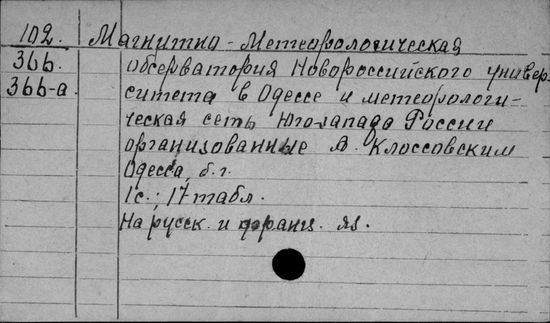 102. Магнитно-Метеорологическая
366. обсерватория Новороссийского универ-
366-а. ситета в Одессе и метеорологи-
ческая сеть Югозапада России
организованные А. Клоссовским
Одесса, б.г.
1с.; 17 табл.
На русск. и франц. яз.